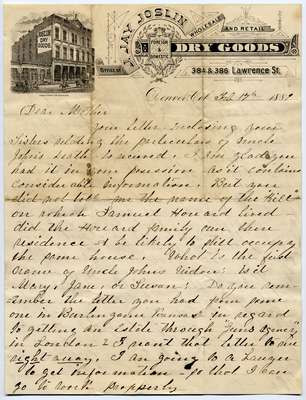 J. JAY JOSLIN
WHOLESALE AND RETAIL
FOREIGN & DOMESTIC
DRY GOODS
384 & 386 Lawrence St.
JOSLIN DRY GOODS
Denver, Col Feb 17th 188
Dear Mother
Your letter inclosing your
Sisters relating the particulars of Uncle
Johns death is received. I am glad you
had it in your possession as it contains
considerable information. But you
did not tell me the name of the Hill
on which Samuel Howard lived
did the Howard family own their
residence & be likely to still occupy
the same house? What is the first
name of Uncle Johns Widow? is it
Mary, Jane, or Susan? Do you rem-
ember the letter you had from some
one in Burlingame Kansas in regard
to getting an Estate through Jens Agency
in London? I want that letter to me
right away. I am going to a Lawyer
to get information so that I can
go to work propperly